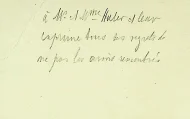 à Mr. & Mme Huber et leur
exprime tous ses regrets de
ne pas les avoir rencontrés